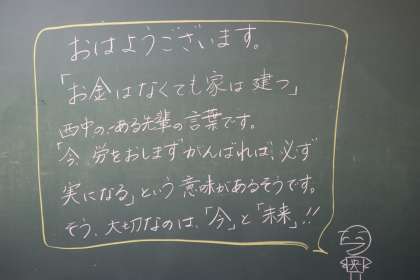 おはようございます。
「お金はなくても家は建つ」
西中の、ある先輩の言葉です。
「今、労をおしまずがんばれば、必ず
実になる」という意味があるそうです。
そう、大切なのは、「今」と「未来」!!